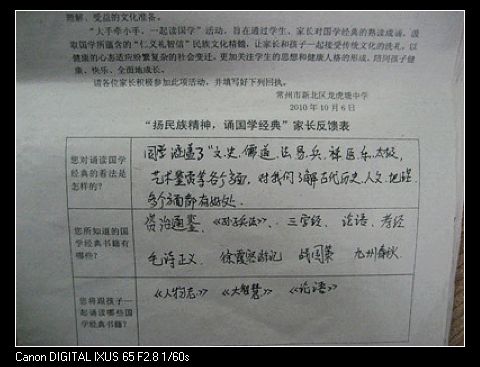 理解、受益的文化准备。
"大手牵小手，一起读国学"活动，旨在通过学生、家长对国学经典的熟读成诵，汲
取国学所蕴含的"仁义礼智信"民族文化精髓，让家长和孩子一起接受传统文化的洗礼，以
健康的心态适应纷繁复杂的社会变迁，更加关注学生的思想和健康人格的形成，陪同孩子健
康、快乐、全面地成长。
请各位家长积极参加此项活动，并填写好下列回执。
常州市新北区龙虎塘中学
2010年10月6日
"扬民族精神，诵国学经典"家长反馈表
您对诵读国学
经典的看法是
怎样的？
国学涵盖了"文、史、儒、道、法、易、兵、禅、医、乐、太极、
艺术鉴赏等各个方面，对我们了解古代历史、人文、地理
各个方面都有好处
您所知道的国
学经典书籍有
哪些？
资治通鉴、《孙子兵法》、三字经、论语、孝经
毛诗正义 徐霞客游记 战国策 九州春秋
您将跟孩子一
起诵读哪些国
学经典书籍？
《人物志》 《大智慧》 《论语》
Canon DIGITAL IXUS 65 F2.8 1/60s